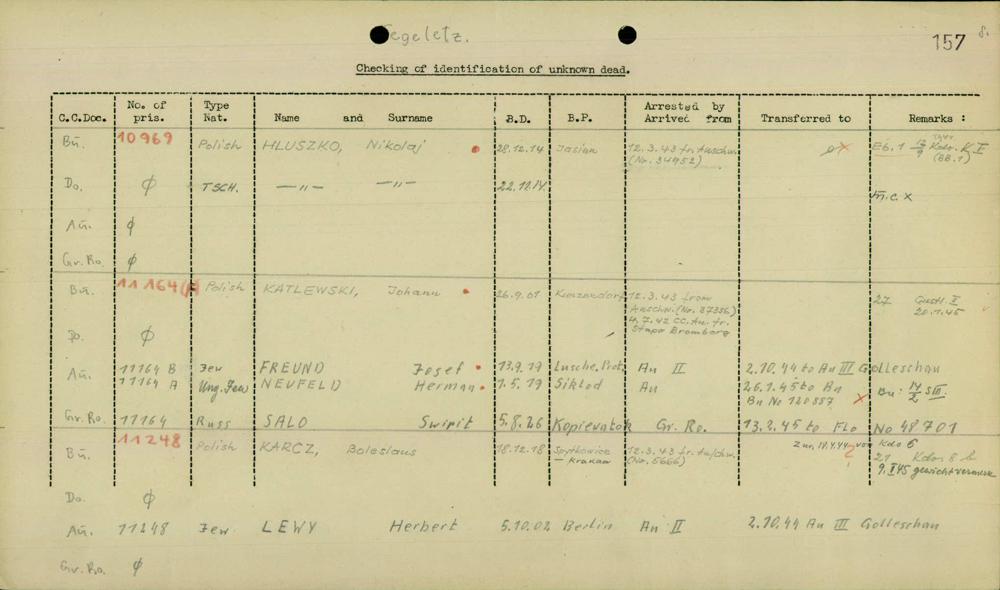 egeletz.
157 8.
Checking of identification of unknown dead.
C.C.Doc. No. of pris. Type Nat. Name and Surname B.D. B.P. Arrested by Arrived from Transferred to Remarks :
Bu. 10969 Polish HŁUSZKO, Nikolaj 28.12.14 Jasian 12.3.43 fr. Auschw. (No. 34952) Eb. 1 Kdo. K I (BB.1)
Do. ϕ TSCH. —"— —"— 22.12.14. m.c. x
Au. ϕ
Gr.Ro. ϕ
Bu. 11164 Polish KATLEWSKI, Johann 26.9.01 12.3.43 from Auschw. (No. 37386) 4.7.42 CC. Au. fr. Stapo Bromberg 27 Gustl. II 20.1.45
Do. ϕ
Au. 11164 B Jew FREUND Josef 13.9.19 Lusche. Prot. Au II 2.10.44 to Au III Golleschau
11164 A Ung. Jew NEUFELD Herman 1.5.19 Siklod Au 26.1.45 to Bu Bu No 120557 x Bu: SIII.
Gr.Ro. 11164 Russ SALO Swirit 5.8.26 Kopievatok Gr. Ro. 13.2.45 to Flo No 48701
Bu. 11248 Polish KARCZ, Boleslaus 18.12.18 Spytkowice - Krakau 12.3.43 fr. Auschw. (No. 5666) von Kdo 6 21 9.I 45 gewichtvermerk
Do. ϕ
Au. 11248 Jew. LEWY Herbert 5.10.02 Berlin Au II 2.10.44 Au III Golleschau
Gr.Ro. ϕ